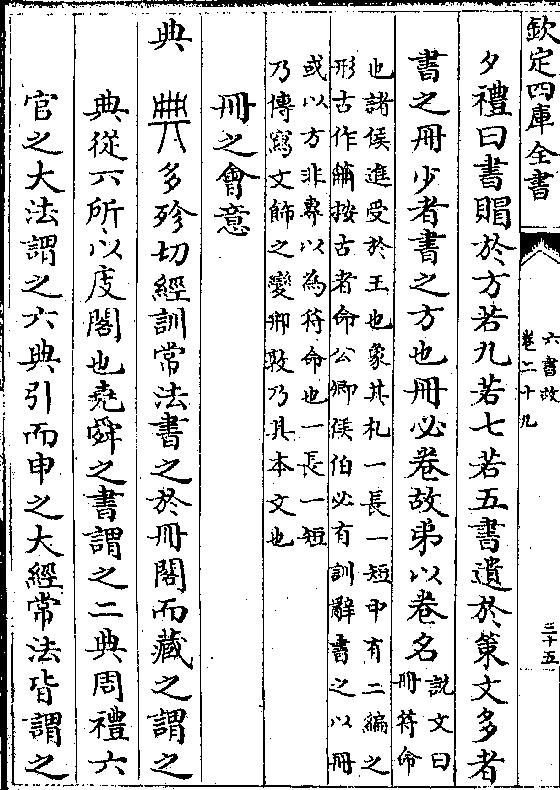 欽定四庫全書
六書故
卷二十九
三十五
夕禮曰書賵於方若九若七若五書遣於策文多者
書之冊少者書之方也冊必卷故弟以卷名
說文曰
冊符命
也諸侯進受於王也象其札一長一短中有二編之
形古作按古者命公卿侯伯必有訓辭書之以冊
或以方非專以為符命也一長一短
乃傳寫文飾之變乃其本文也
冊之會意
典 多殄切經訓常法書之於冊閣而藏之謂之
典從六所以庋閣也堯舜之書謂之二典周禮六
官之大法謂之六典引而申之大經常法皆謂之